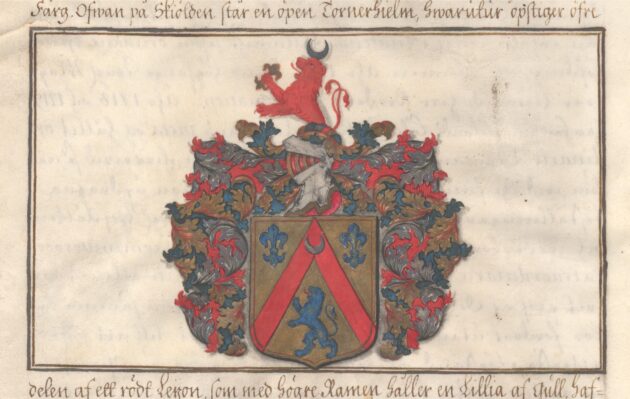 Färg. Ofwan på Skiölden står en öpen Tornerhielm, hwarutur öpstiger öfre
delen af ett rödt Leyon, som med högre Ramen håller en Lillia af Gull, haf-